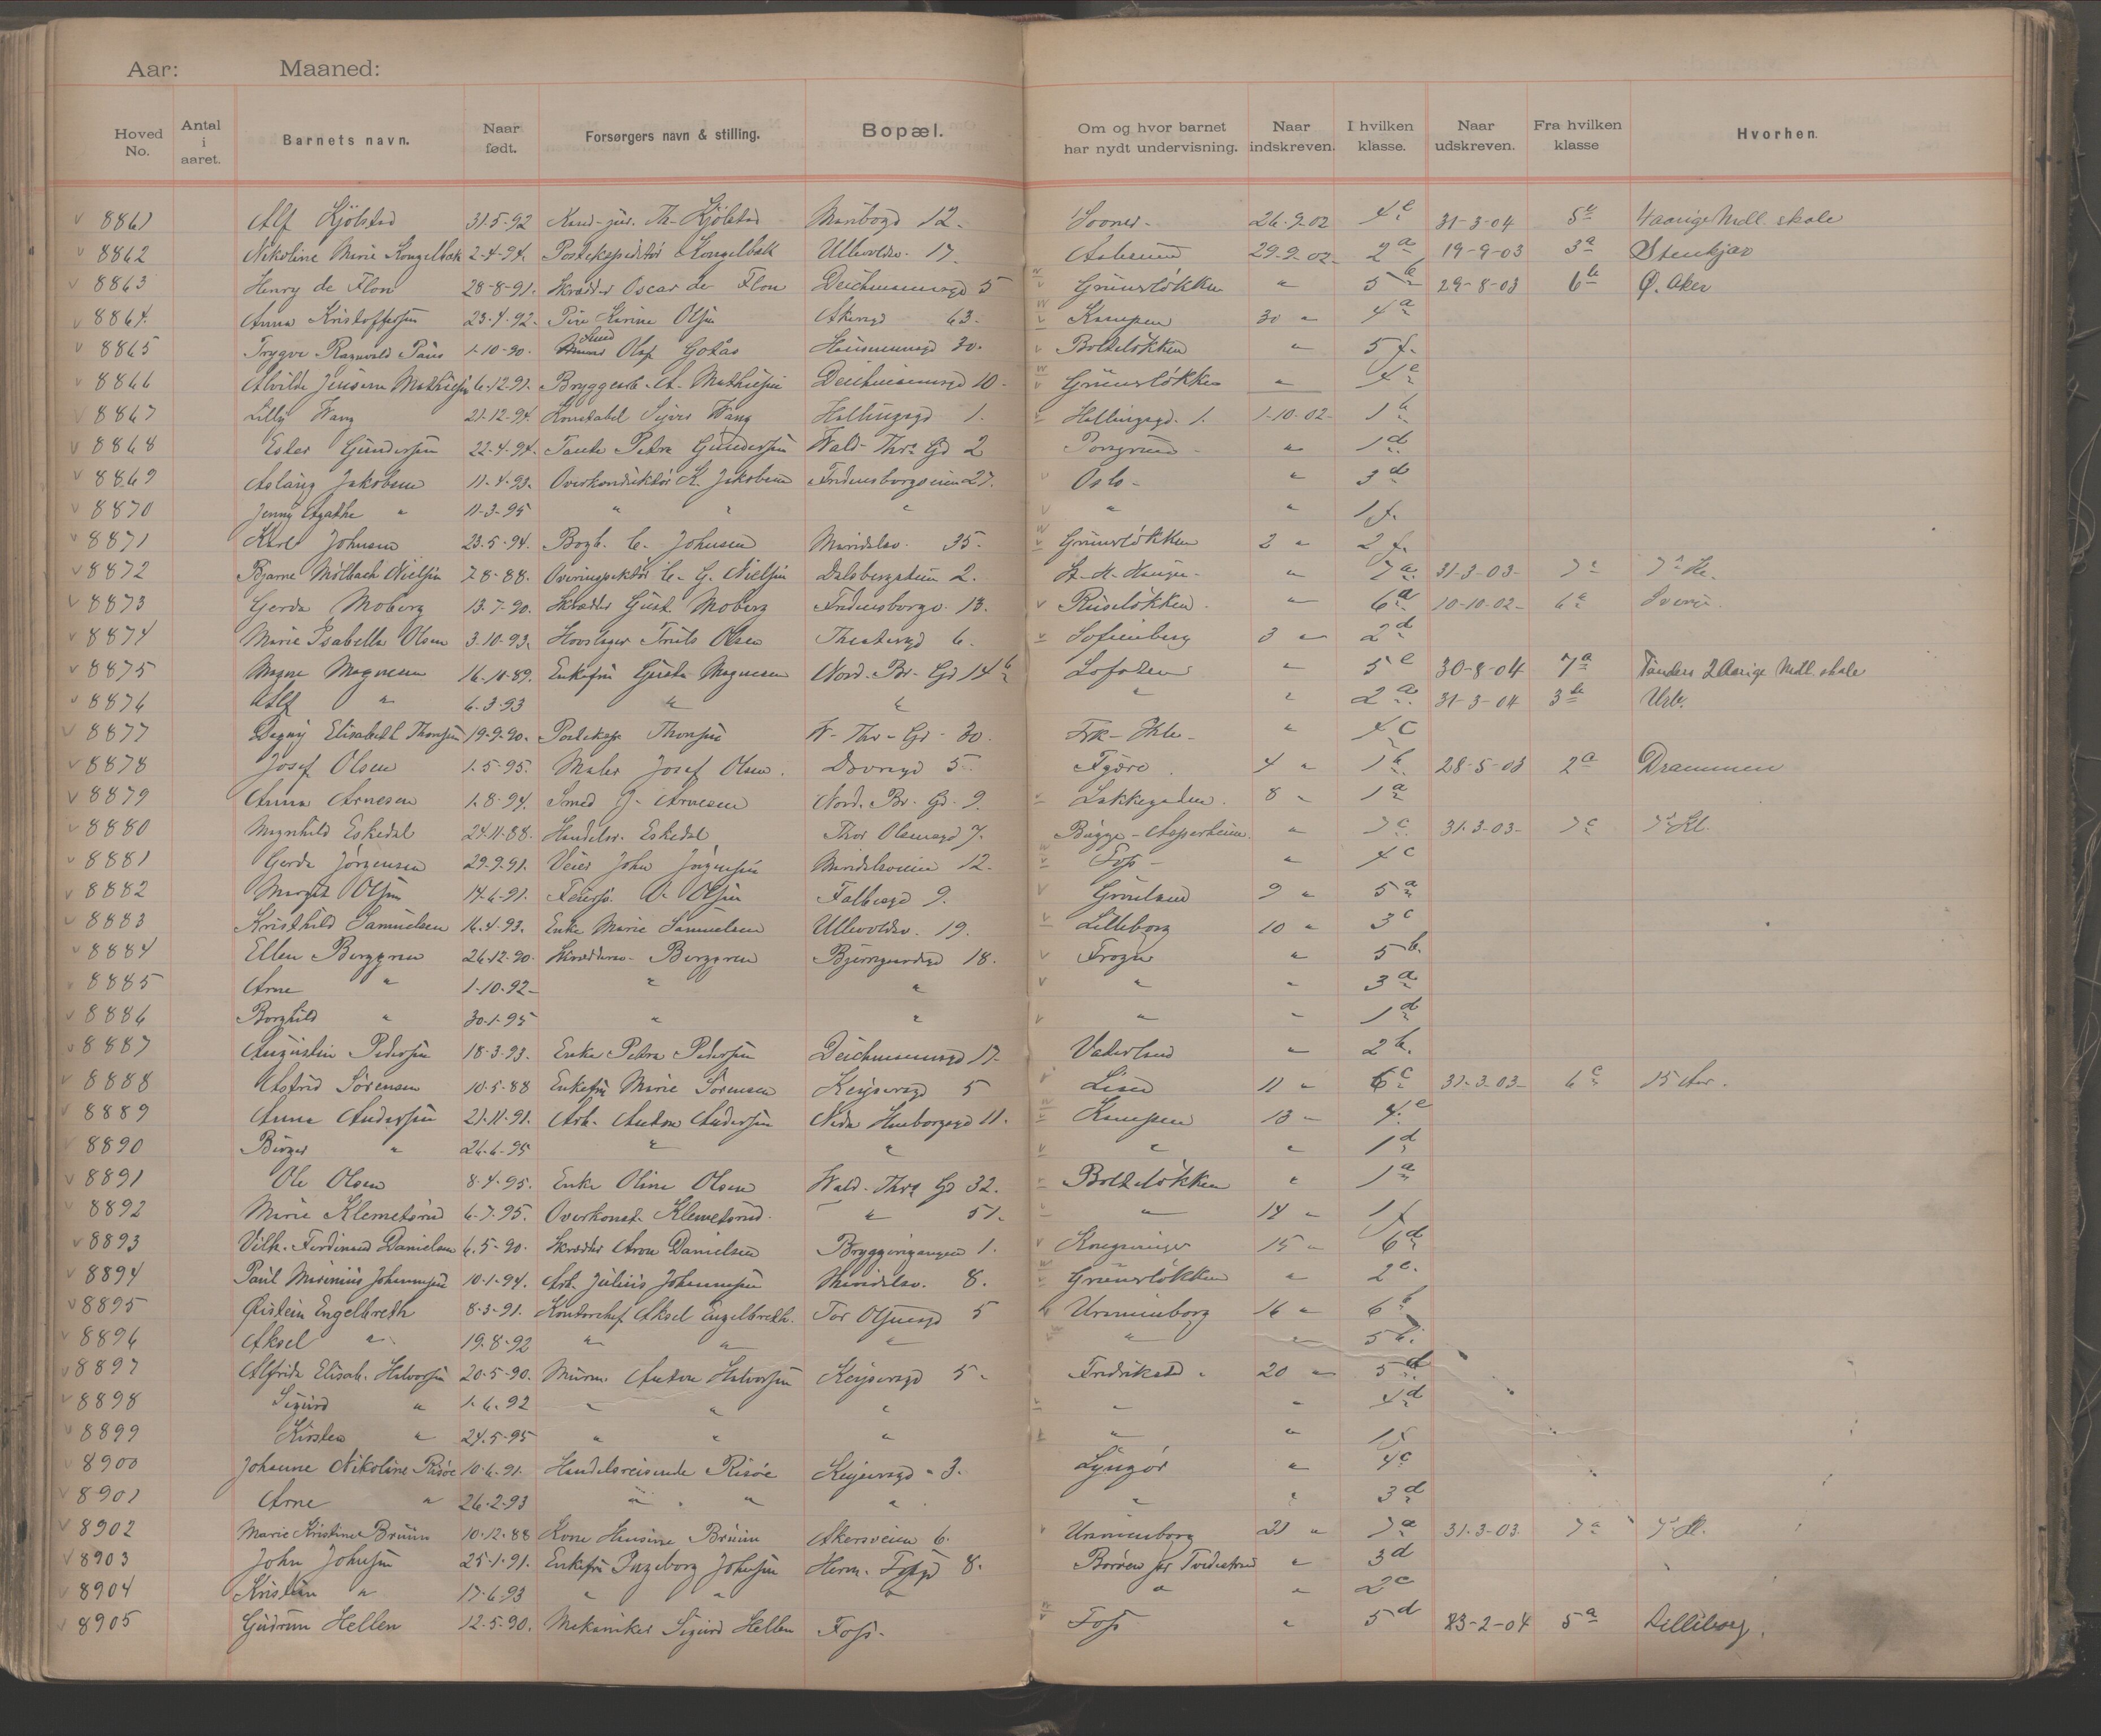 Aar: Maaned:
Hoved No. Antal i aaret. Barnets navn. Naar født. Forsørgers navn & stilling. Bopæl. Om og hvor barnet har nydt undervisning. Naar indskreven. I hvilken klasse. Naar udskreven. Fra hvilken klasse Hvorhen.
8861 Alf Kjölstad 31-5-92 Kand. jur. Th. Kjölstad 12. 26-9-02 4e 31-3-04 5b 4aarige Mdl. skole
8862 Nikoline Marie Kongelbak 2-4-94. Postekspeditör Kongelbak Ullevoldsv. 17. Aalesund 29-9-02 2a 19-9-03 3a Stenkjær
8863 Henry de Flon 28-8-91. Skrædder Oscar de Flon Deichmannsgd 5 Grünerlökken " 5b 29-8-03 6b Ø. Aker
8864. Anna Kristoffersen 23-4-92. Karine Olsen Akersgd 63. Kampen 30 " 4a
8865 Trygve Ragnvald Paus 1-10-90. Olaf Gotaas Hausmannsgd 30. Bolteløkken " 5f.
8866 Alvilde Jensine Mathiesen 6-12-91. Bryggearb. A. Mathiesen Deichmannsgd 10. Grünerlökken " 4e
8867 Lilly Wang 21-12-94. Konstabel Wang Hallingsgd 1. Hallingsgd. 1. 1-10-02. 1b
8868 Ester Gundersen 22-4-94. Tante Petra Gundersen Wald. Thrs Gd 2 Porsgrund " 1d
8869 Aslaug Jakobsen 11-4-93. Overkonduktör K. Jakobsen Fredensborgveien 27. Oslo " 3d
8870 Jenny Agathe " 11-3-95 " " " " " 1f.
8871 Karl Johnsen 23-5-94. Bogh. C. Johnsen Maridalsv. 35. Grünerlökken 2 " 2f.
8872 Bjarne Mölbach Nielsen 7-8-88. Overinspektör C. G. Nielsen Dalsbergstien 2. " 7a 31-3-03 7a 7de Kl.
8873 Gerda Moberg 13-7-90. Skrædder Gust. Moberg Fredensborgv. 13. Ruselökken " 6a 10-10-02 6a
8874 Marie Isabella Olsen 3-10-93. Hovslager Truls Olsen Theatergd 6. Sofienberg 3 " 2d
8875 Magne Magnesen 16-10-89. Enkefru Magnesen Nord. Br. Gd 14b Lofoten " 5e 30-8-04 7a Tanders 2 Aarige Mdl. skole
8876 Alf " 6-3-93 " " " " 2a 31-3-04 3b
8877 Dagny Elisabeth Thonsen 19-9-90. Postekspr Thonsen W. Thr. Gd. 30. " 4c
8878 Josef Olsen 1-5-95. Maler Josef Olsen. Dovregd 5. 4 " 1b 28-5-03 2a Drammen
8879 Anna Arnesen 1-8-94. Smed J. Arnesen Nord. Br. Gd. 9. Lakkegaden. 8 " 1a
8880 Magnhild Eskedal 24-11-88. Handelsr. Eskedal Thor Olsensgd 7. " 7c 31-3-03 7c 7de Kl.
8881 Gerda Jörgensen 29-9-91. Veier John Jörgensen Maridalsveien 12. Foss " 4c
8882 Margit Olsen 14-6-91. Olsen Falbesgd 9. Grönland 9 " 5a
8883 Kristhild Samuelsen 16-4-93. Enke Marie Samuelsen Ullevoldsv. 19. Lilleborg 10 " 3c
8884 Ellen Berggren 26-12-90. Berggren Bjerregaardsgd 18. Frogn " 5b.
8885 Arne " 1-10-92 " " " " 3a
8886 Borghild " 30-1-95 " " " " 1d
8887 Augustin Pedersen 18-3-93. Enke Petra Pedersen Deichmannsgd 17. Vaterland " 2b.
8888 Astrid Sörensen 10-5-88 Enkefru Marie Sörensen Keysersgd 5 11 " 6c 31-3-03 6c 15 Aar.
8889 Anna Andersen 21-11-91. Arb. Anton Andersen 11. Kampen 13 " 4e
8890 Birger " 26-6-95 " " " " 1d
8891 Ole Olsen 8-4-95. Enke Oline Olsen Wald. Thrs Gd 32. Bolteløkken " 1a
8892 Marie Klemetsrud 6-7-95. Overkonst. Klemetsrud. " 51. " 14 " 1f
8893 Vilh. Ferdinand Danielsen 6-5-90. Skrædder Aron Danielsen Bryggerigangen 1. Kongsvinger 15 " 6d
8894 Paul Marinius Johannesen 10-1-94. Arb. Julius Johannesen Maridalsv. 8. Grünerlökken " 2c.
8895 Øistein Engelbreth 8-3-91. Kontorchef Aksel Engelbreth. Tor Olsensgd 5 Uranienborg 16 " 6b
8896 Aksel " 19-8-92 " " " " " 5b.
8897 Alfrida Elisab. Halvorsen 20-5-90. Murm. Anton Halvorsen Keysersgd 5. Fredrikstad 20 " 5d
8898 Sigurd " 1-6-92 " " " " " 4d
8899 Kirsten " 24-5-95 " " " " " 1f
8900 Johanne Nikoline Risöe 10-6-91. Handelsreisende Risöe Keysersgd 3. Lyngör " 4c
8901 Arne " 26-2-93 " " " " " 3d
8902 Marie Kristine Bruun 10-12-88 Kone Bruun Akersveien 6. Uranienborg 21 " 7a 31-3-03. 7a 7de Kl.
8903 John Johnsen 25-1-91. Enkefru Ingeborg Johnsen Herm. Fossgd 8. Borøen pr Tvedestrand " 3d
8904 Kristian " 17-6-93 " " " " " 2c
8905 Gudrun Hellen 12-5-90. Mekaniker Sigurd Hellen Foss. Foss " 5d 23-2-04 5a Lilleborg.